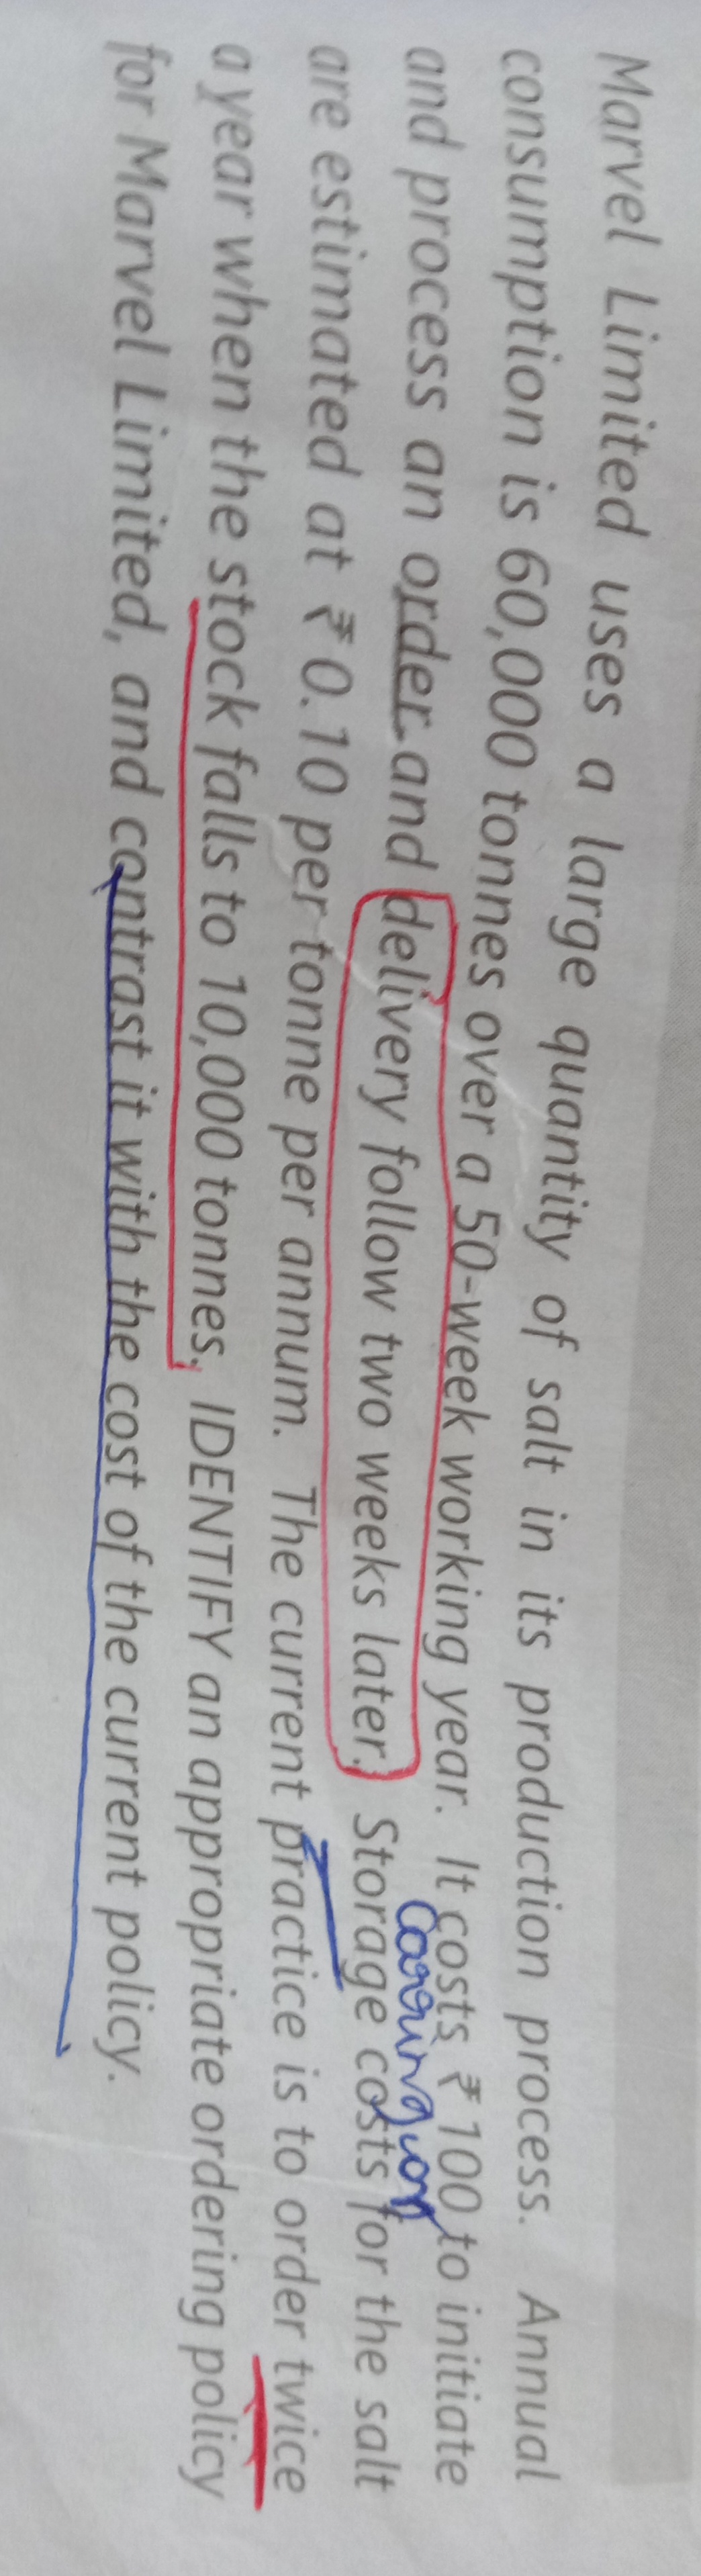 Marvel Limited uses a large quantity of salt in its production process. Annual
consumption is 60,000 tonnes over a 50-week working year. It costs ₹ 100 to initiate
and process an order and delivery follow two weeks later. Storage costs for the salt
are estimated at ₹ 0.10 per tonne per annum. The current practice is to order twice
a year when the stock falls to 10,000 tonnes. IDENTIFY an appropriate ordering policy
for Marvel Limited, and contrast it with the cost of the current policy.